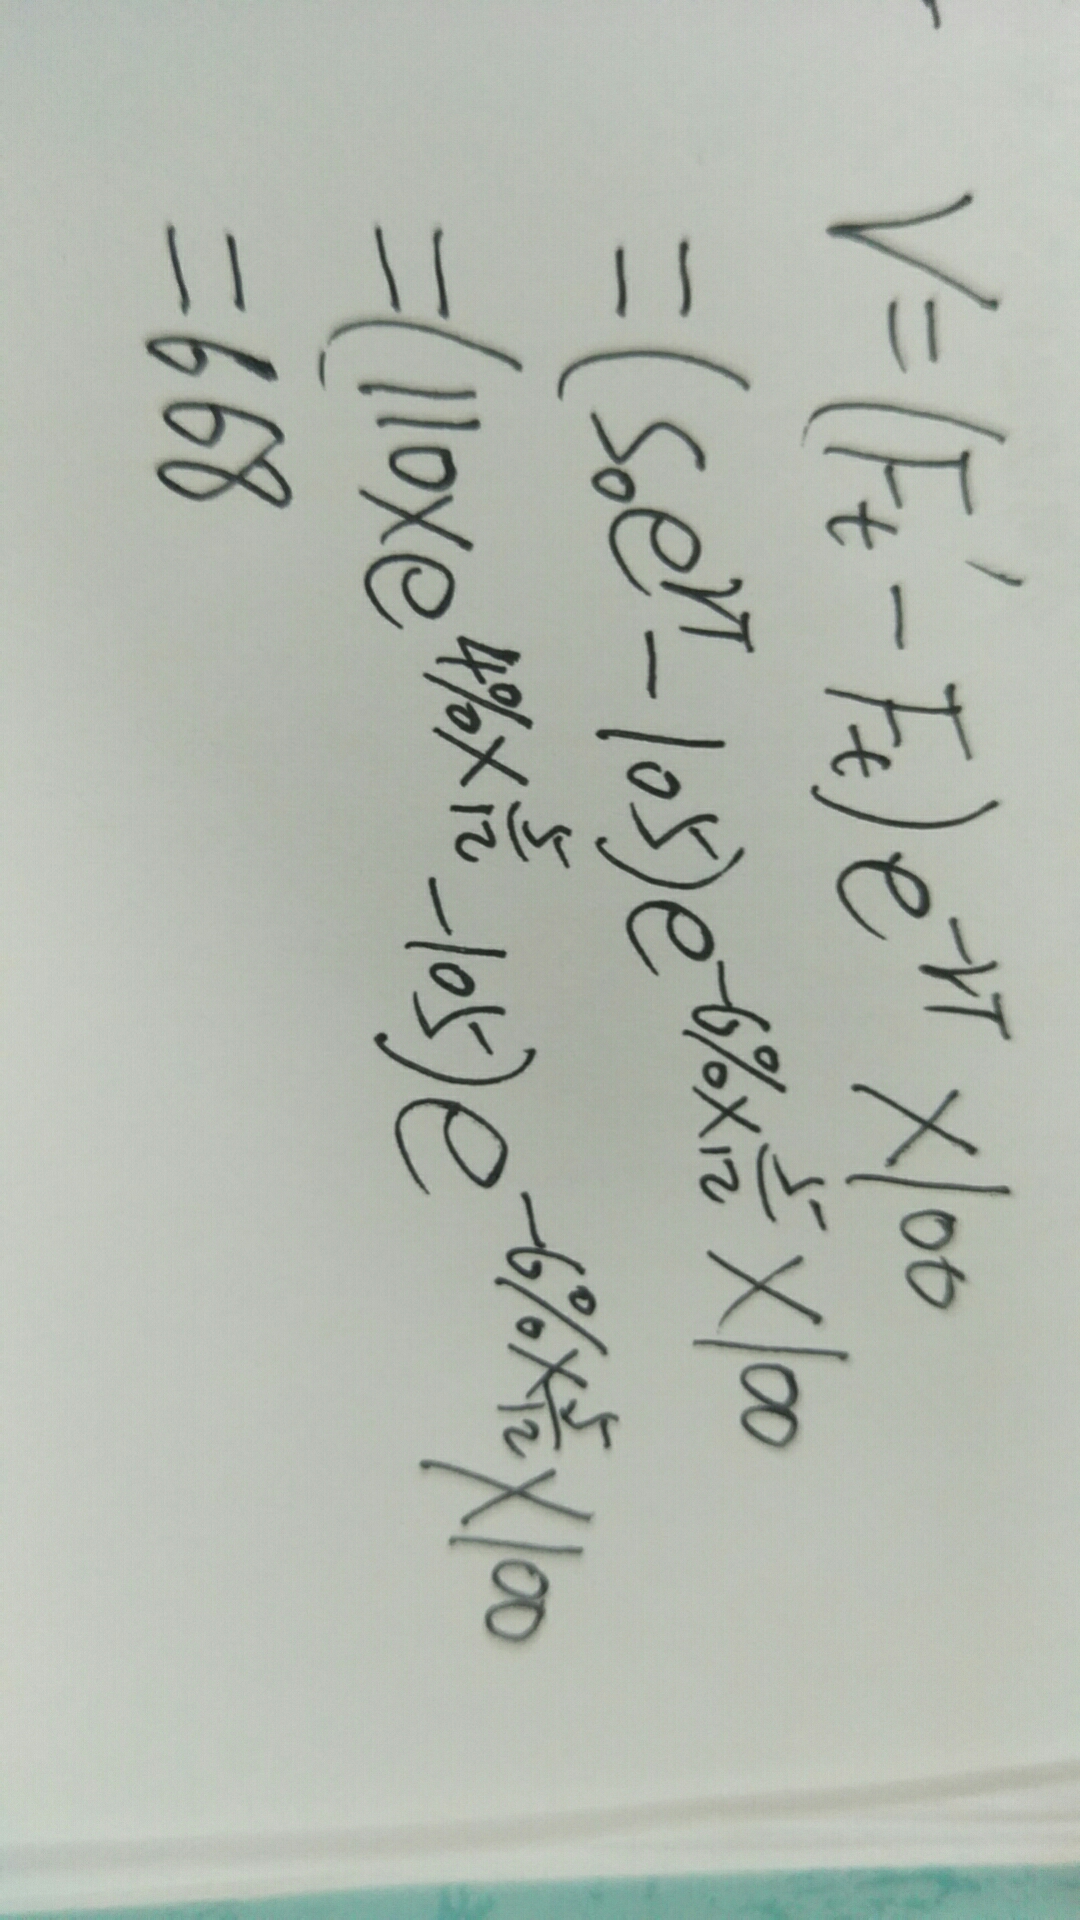 V=(F_t' - F_t)e^{-rT} ×100
=(S_0e^{rT} - 105)e^{-6%×5/12} ×100
=(110×e^{4%×5/12} - 105)e^{-6%×5/12} ×100
=668